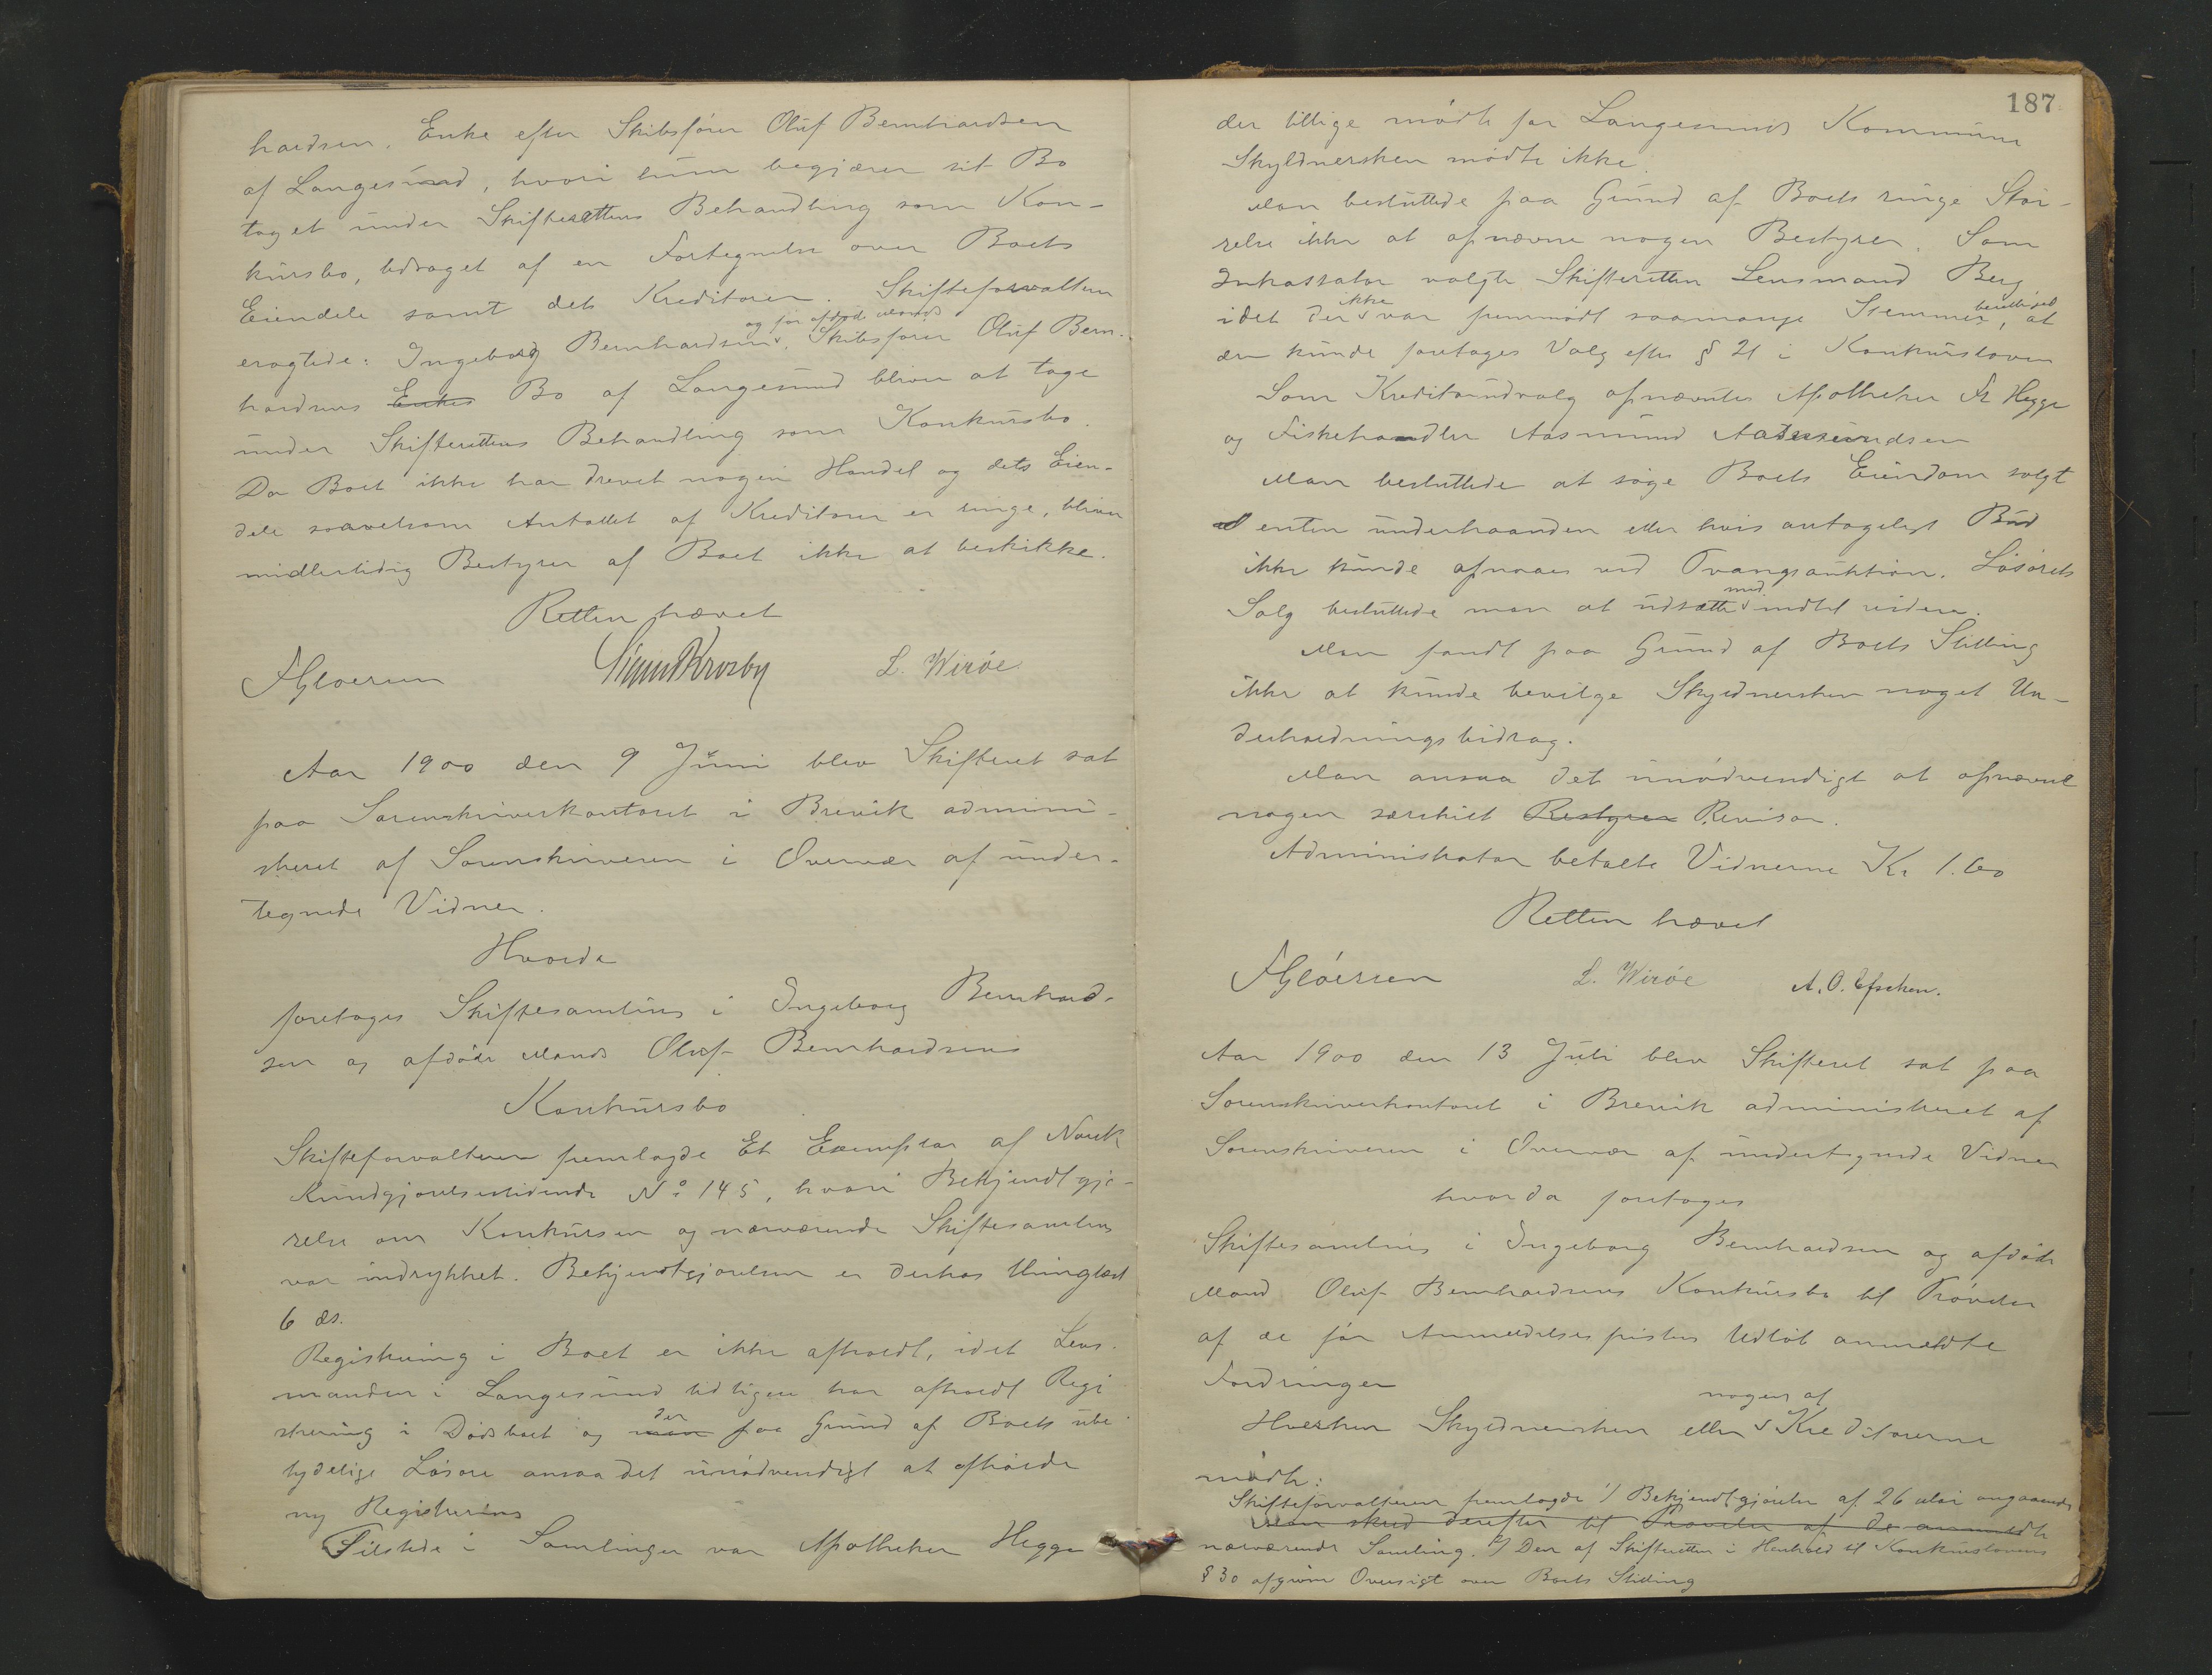 hardsen, Enke efter Skibsfører Oluf Bernhardsen
af Langesund, hvori hun begjærer sit Bo
taget under Skifterettens Behandling som Kon-
kursbo, ledsaget af en Fortegnelse over Boets
Eiendele samt dets Kreditorer. Skifteforvalteren
eragtede: Ingeborg Bernhardsens og for afdøde Mands Skibsfører Oluf Bern-
hardsens Enkes Bo af Langesund bliver at tage
under Skifterettens Behandling som Konkursbo.
Da Boet ikke har drevet nogen Handel og dets Eien-
dele saavelsom Antallet af Kreditorer er ringe, bliver
midlertidig Bestyrer af Boet ikke at beskikke.
Retten hævet
FGløersen L. Wirøe
Aar 1900 den 9 Juni blev Skifteret sat
paa Sorenskriverkontoret i Brevik admini-
streret af Sorenskriveren i Overvær af under-
tegnede Vidner.
Hvorda
foretoges Skiftesamling i Ingeborg Bernhard-
sen og afdøde Mands Oluf Bernhardsens
Konkursbo
Skifteforvalteren fremlagde Et Exemplar af Norsk
Kundgjørelsestidende No 145, hvori Bekjendtgjø-
relse om Konkursen og nærværende Skiftesamling
var indrykket. Bekjendtgjørelsen er derhos thinglæst
6 ds.
Registrering i Boet er ikke afholdt, idet Lens-
manden i Langesund tidligere har afholdt Regi
strering i Dødsboet og man der paa Grund af Boets ube-
tydelige Løsøre ansaa det unødvendigt at afholde
ny Registrering
Tilstede i Samlingen var Apotheker Hegge
187
der tillige mødte for Langesunds Kommune
Skyldnersken mødte ikke.
Man besluttede paa Grund af Boets ringe Stør-
relse ikke at opnævne nogen Bestyrer. Som
Inkassator valgte Skifteretten Lensmand Berg
idet der ikke var fremmødt saamange Stemmeberettiged, at
der kunde foretages Valg efter § 21 i Konkursloven
Som Kreditorudvalg opnævntes Apotheker Fr Hegge
og Fiskehandler Aasmund Aasmundsen
Man besluttede at søge Boets Eiendom solgt
enten underhaanden eller hvis antageligt Bud
ikke kunde opnaaes ved Tvangsauktion. Løsørets
Salg besluttede man at udsætte med indtil videre.
Man fandt paa Grund af Boets Stilling
ikke at kunde bevilge Skyldnersken noget Un-
derholdningsbidrag.
Man ansaa det unødvendigt at opnævne
nogen særskilt Bestyrer Revisor.
Administrator betalte Vidnerne Kr 1.60
Retten hævet
FGløersen L. Wirøe A. O.
Aar 1900 den 13 Juli blev Skifteret sat paa
Sorenskriverkontoret i Brevik administreret af
Sorenskriveren i Overvær af undertegnede Vidner
hvorda foretoges
Skiftesamling i Ingeborg Bernhardsen og afdøde
Mand Oluf Bernhardsens Konkursbo til Prøvelse
af de før Anmeldelsesfristens Udløb anmeldte
Fordringer
Hverken Skyldnersken eller nogen af Kreditorerne
mødte:
Skifteforvalteren fremlagde 1/ Bekjendtgjørelse af 26 Mai angaaende
Man skred derefter til Prøvelse af de anmeldte
nærværende Samling. 2/ Den af Skifteretten i Henhold til Konkurslovens
§ 30 afgivne Oversigt over Boets Stilling